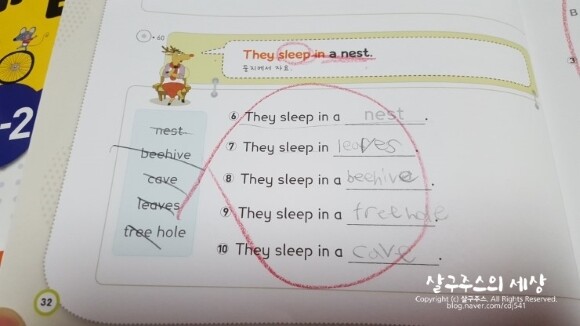 60
They sleep in a nest.
둥지에서 자요.
nest
beehive
cave
leaves
tree hole
⑥ They sleep in a nest.
⑦ They sleep in leaves.
⑧ They sleep in a beehive.
⑨ They sleep in a treehole.
⑩ They sleep in a cave.
32
-2
살구주스의 세상
Copyright (c) 살구주스. All Rights Reserved.
blog.naver.com/cdj541